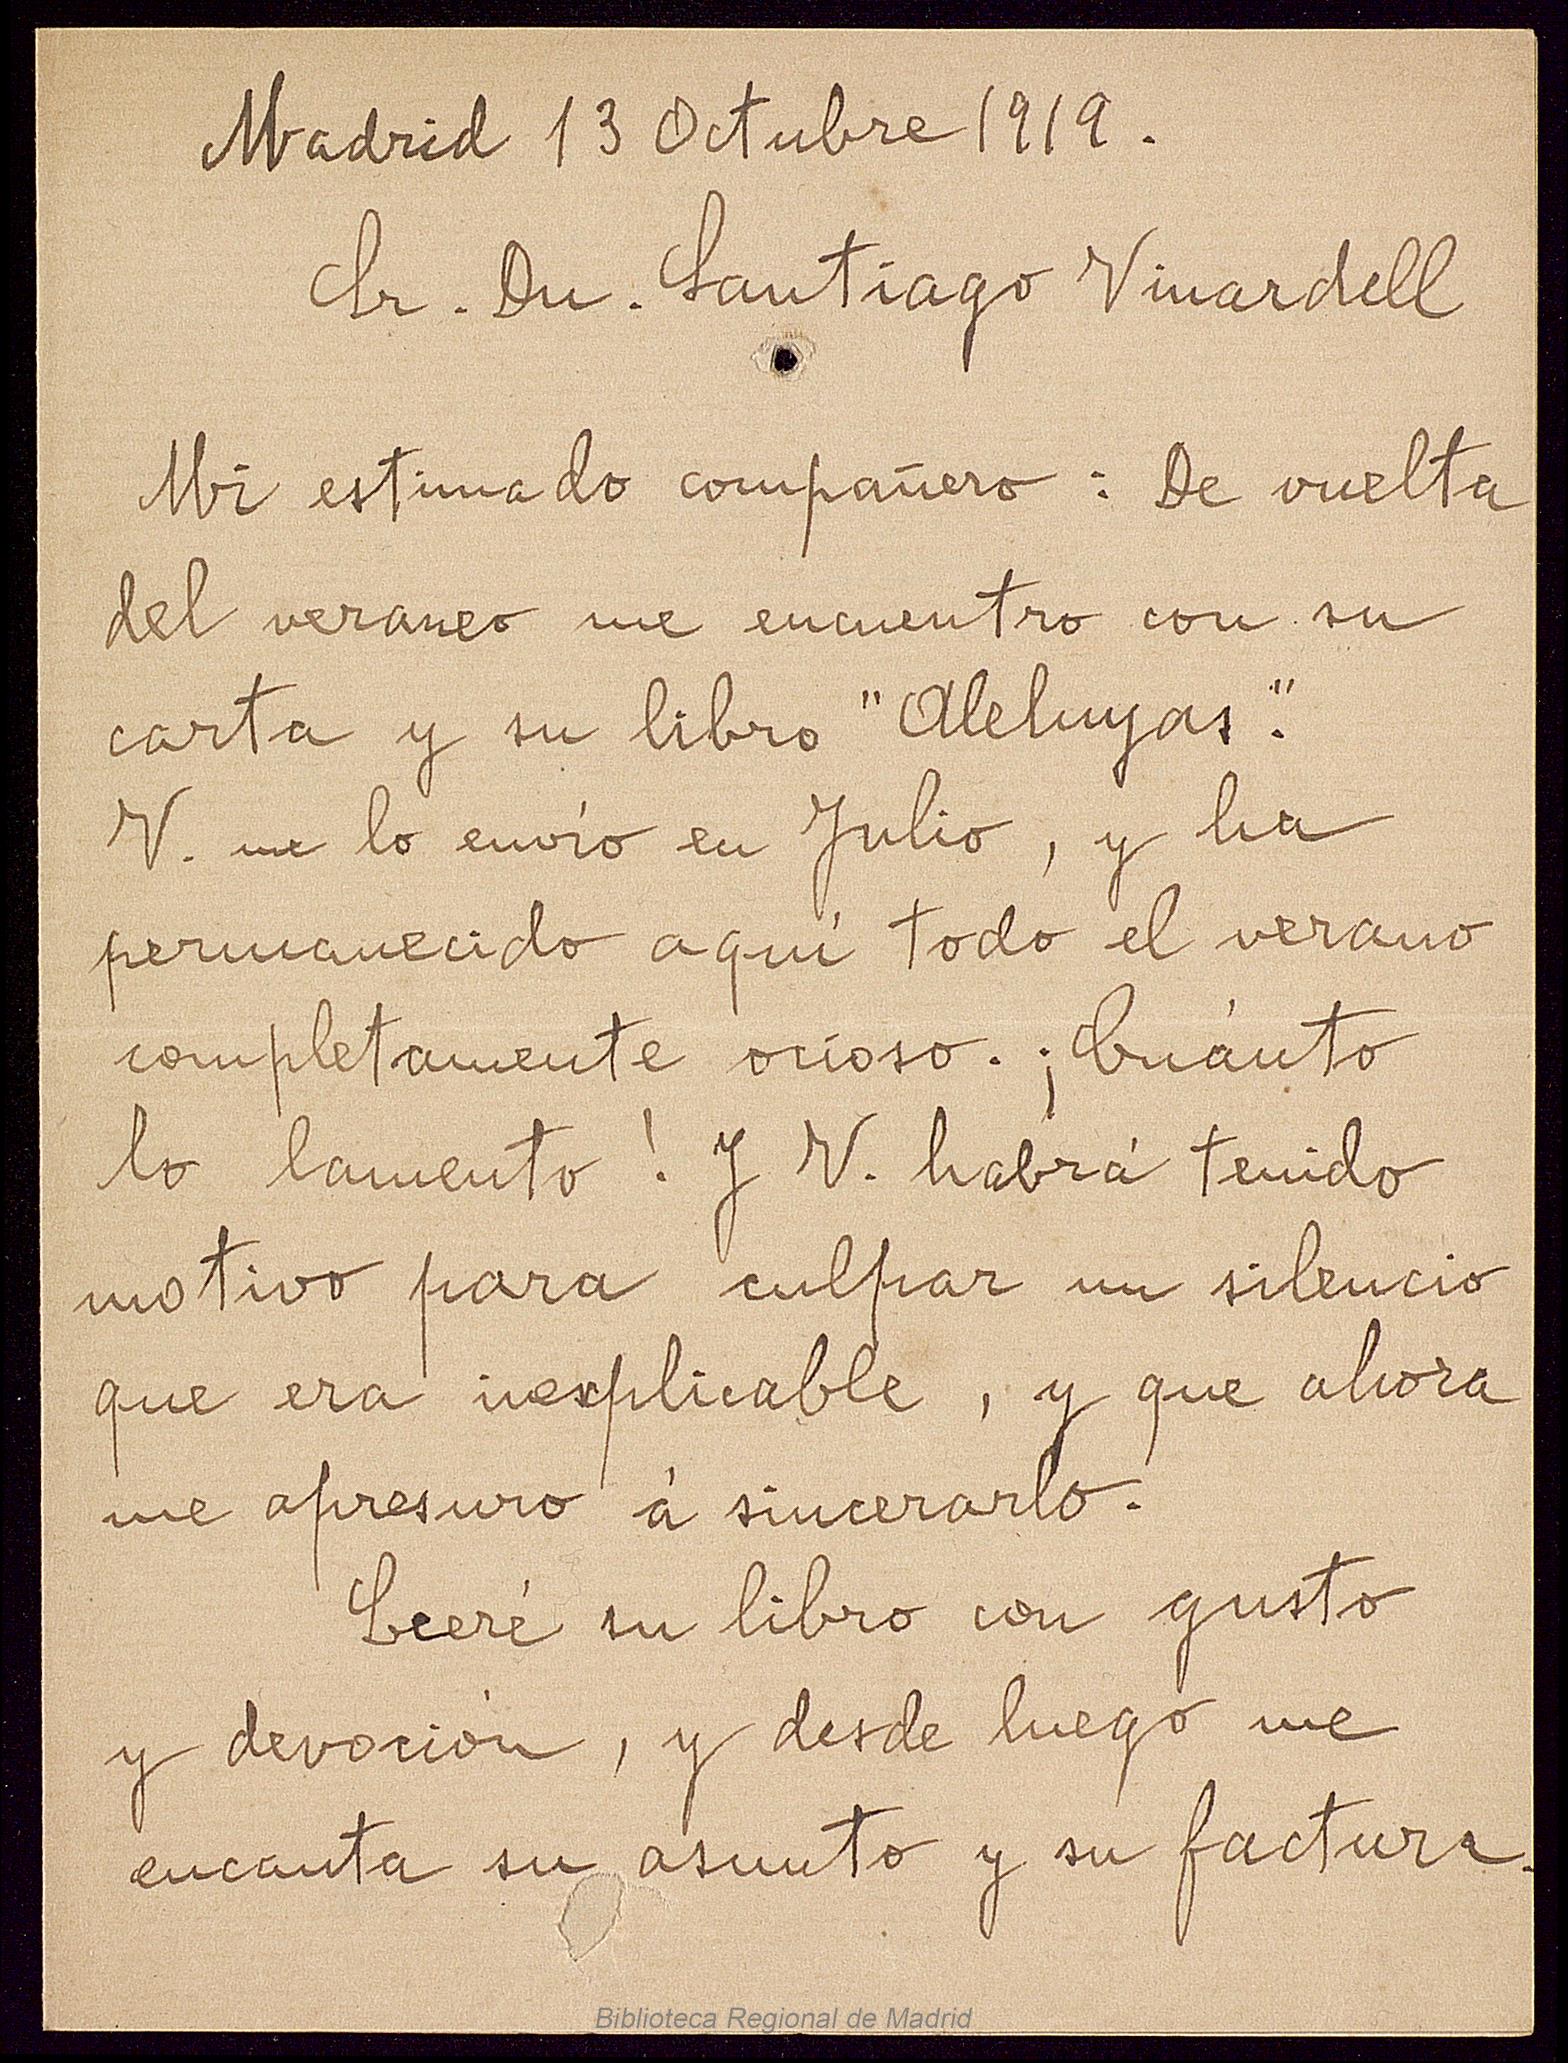 Madrid 13 Octubre 1919.
Sr. Dn. Santiago Vinardell
Mi estimado compañero: De vuelta
del veraneo me encuentro con su
carta y su libro "Aleluyas".
V. me lo envío en Julio, y ha
permanecido aquí todo el verano
completamente ocioso. ¡Cuánto
lo lamento! Y V. habrá tenido
motivo para culpar un silencio
que era inexplicable, y que ahora
me apresuro á sincerarlo.
Leeré su libro con gusto
y devoción, y desde luego me
encanta su asunto y su factura.
Biblioteca Regional de Madrid